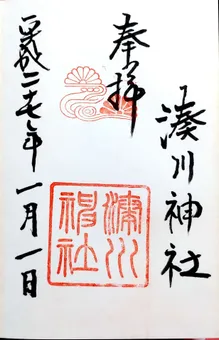 湊川神社
奉拝
湊川
神社
平成二十七年一月一日